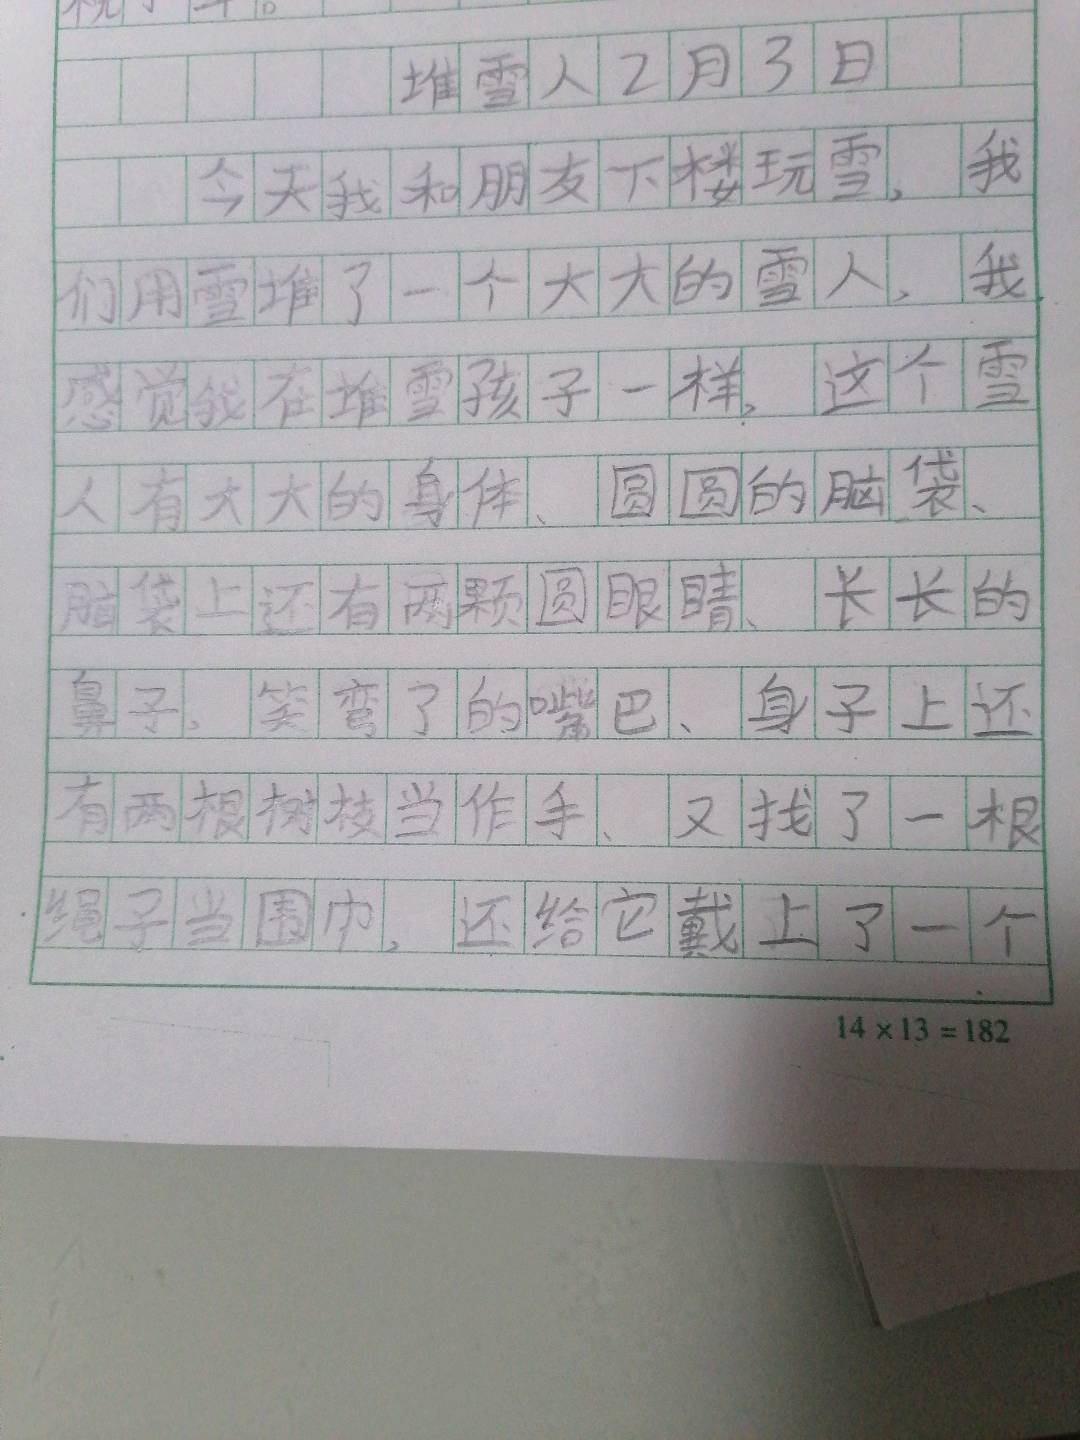 堆雪人2月3日
今天我和朋友下楼玩雪，我
们用雪堆了一个大大的雪人，我
感觉我在堆雪孩子一样，这个雪
人有大大的身体、圆圆的脑袋、
脑袋上还有两颗圆眼睛、长长的
鼻子，笑弯了的嘴巴、身子上还
有两根树枝当作手、又找了一根
绳子当围巾，还给它戴上了一个
14×13=182